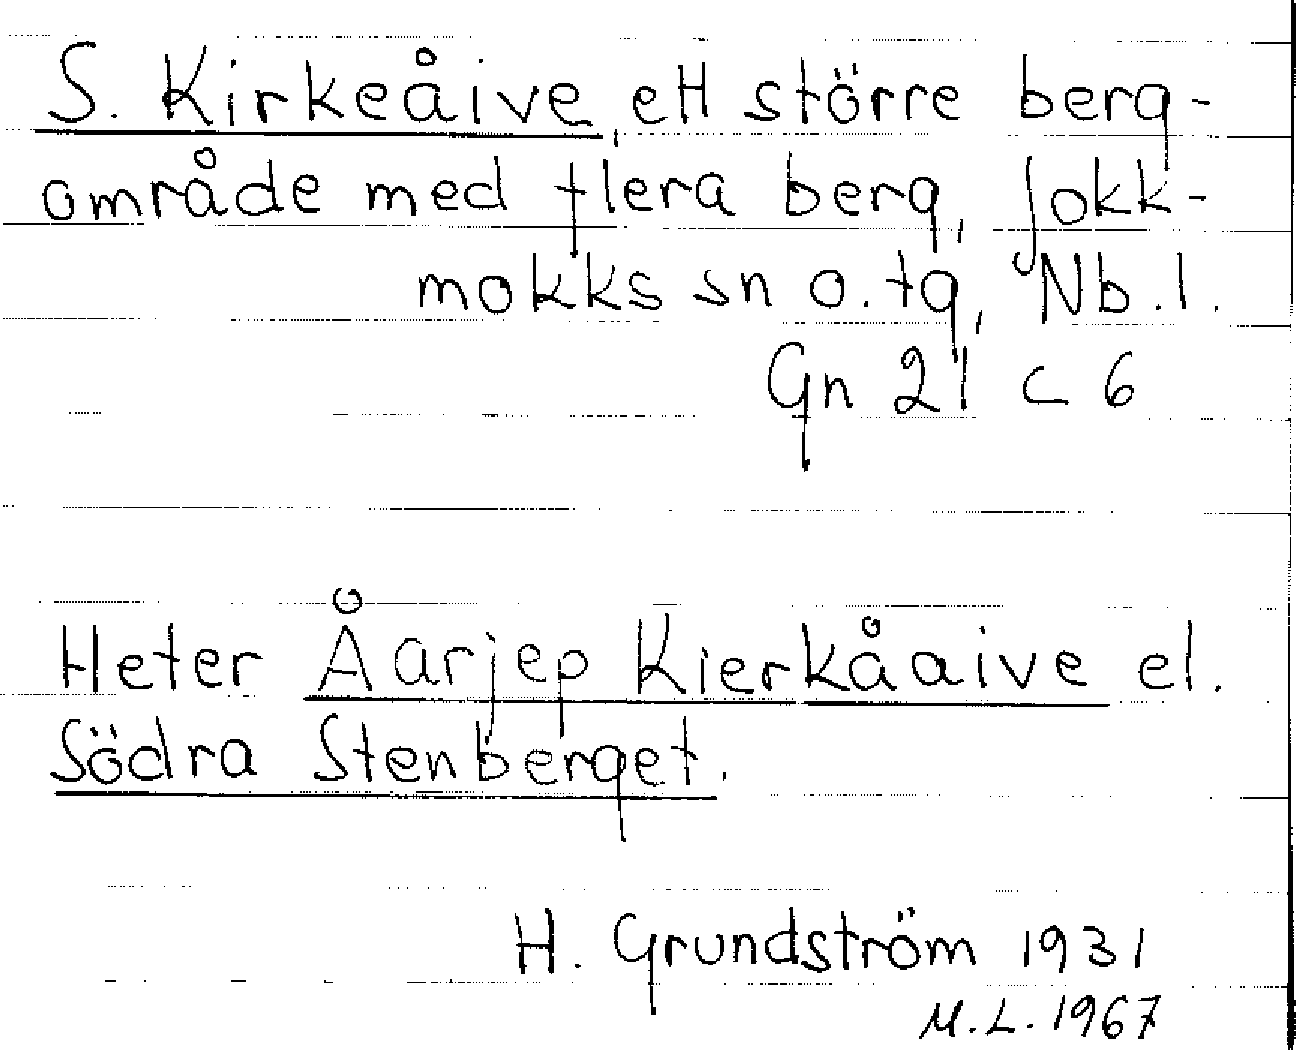 S. Kirkeåive, ett större berg-
område med flera berg, Jokk-
mokks sn o. tg, Nb. l.
Gn 21 c 6
Heter Åarjep Kierkåaive el.
Södra Stenberget.
H. Grundström 1931
M.L. 1967